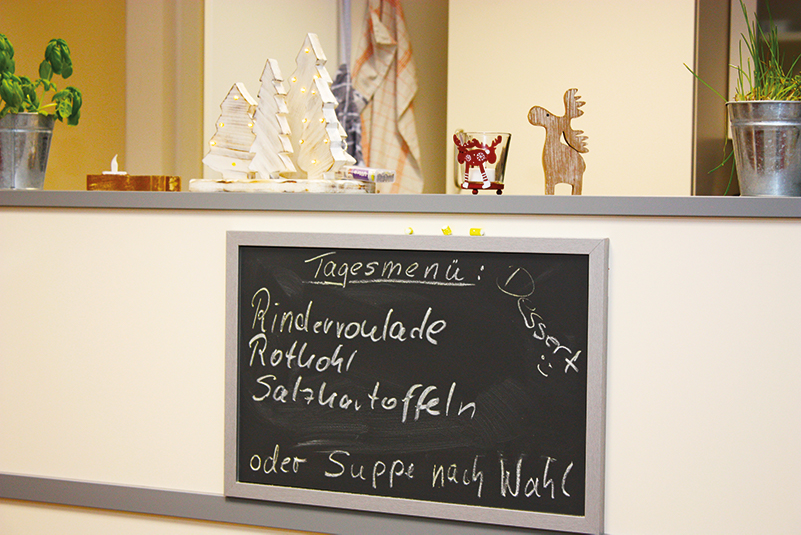 Tagesmenü:
Dessert :)
Rinderroulade
Rotkohl
Salzkartoffeln
oder Suppe nach Wahl